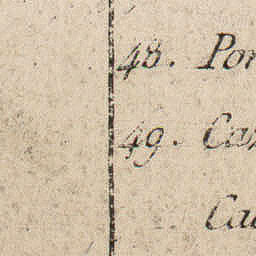 48. Por
49. Ca
Ca